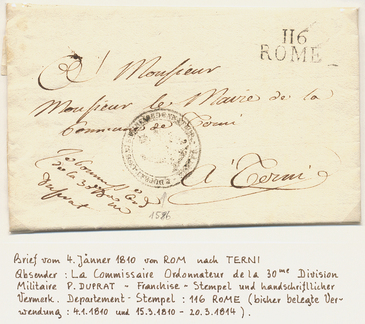 116
ROME
A Monsieur
Monsieur le Maire de la
Commune de Terni
A Terni
Duprat
1586
Brief vom 4. Jänner 1810 von ROM nach TERNI
Absender : La Commissaire Ordonnateur de la 30me Division
Militaire P. DUPRAT - Franchise - Stempel und handschriftlicher
Vermerk. Departement - Stempel : 116 ROME (bisher belegte Ver-
wendung : 4.1.1810 und 15.3.1810 - 20.3.1814).